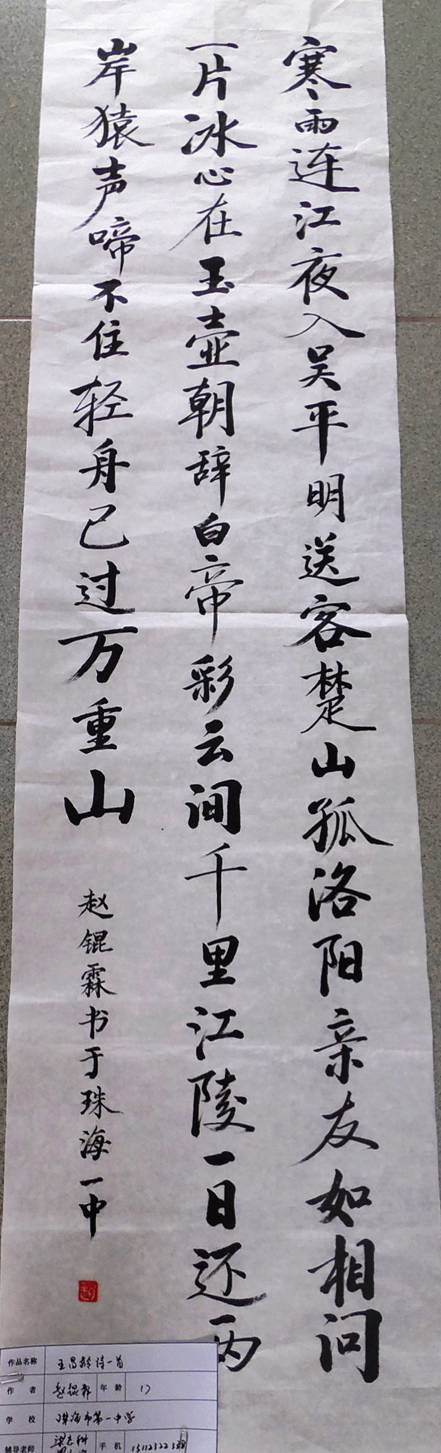 寒雨连江夜入吴平明送客楚山孤洛阳亲友如相问
一片冰心在玉壶朝辞白帝彩云间千里江陵一日还两
岸猿声啼不住轻舟已过万重山
赵锟霖书于珠海一中
作品名称 王昌龄诗一首
作者 赵锟霖 年龄 17
学校 珠海市第一中学
辅导老师 手机